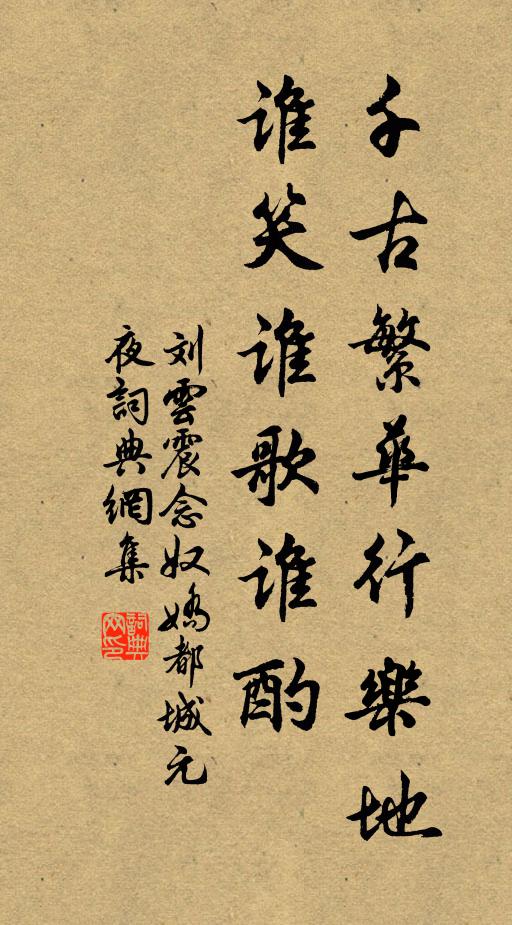 千古繁華行樂地
谁笑谁歌谁酌
刘雲震念奴嬌都城元
夜詞典網集
詞典
网印